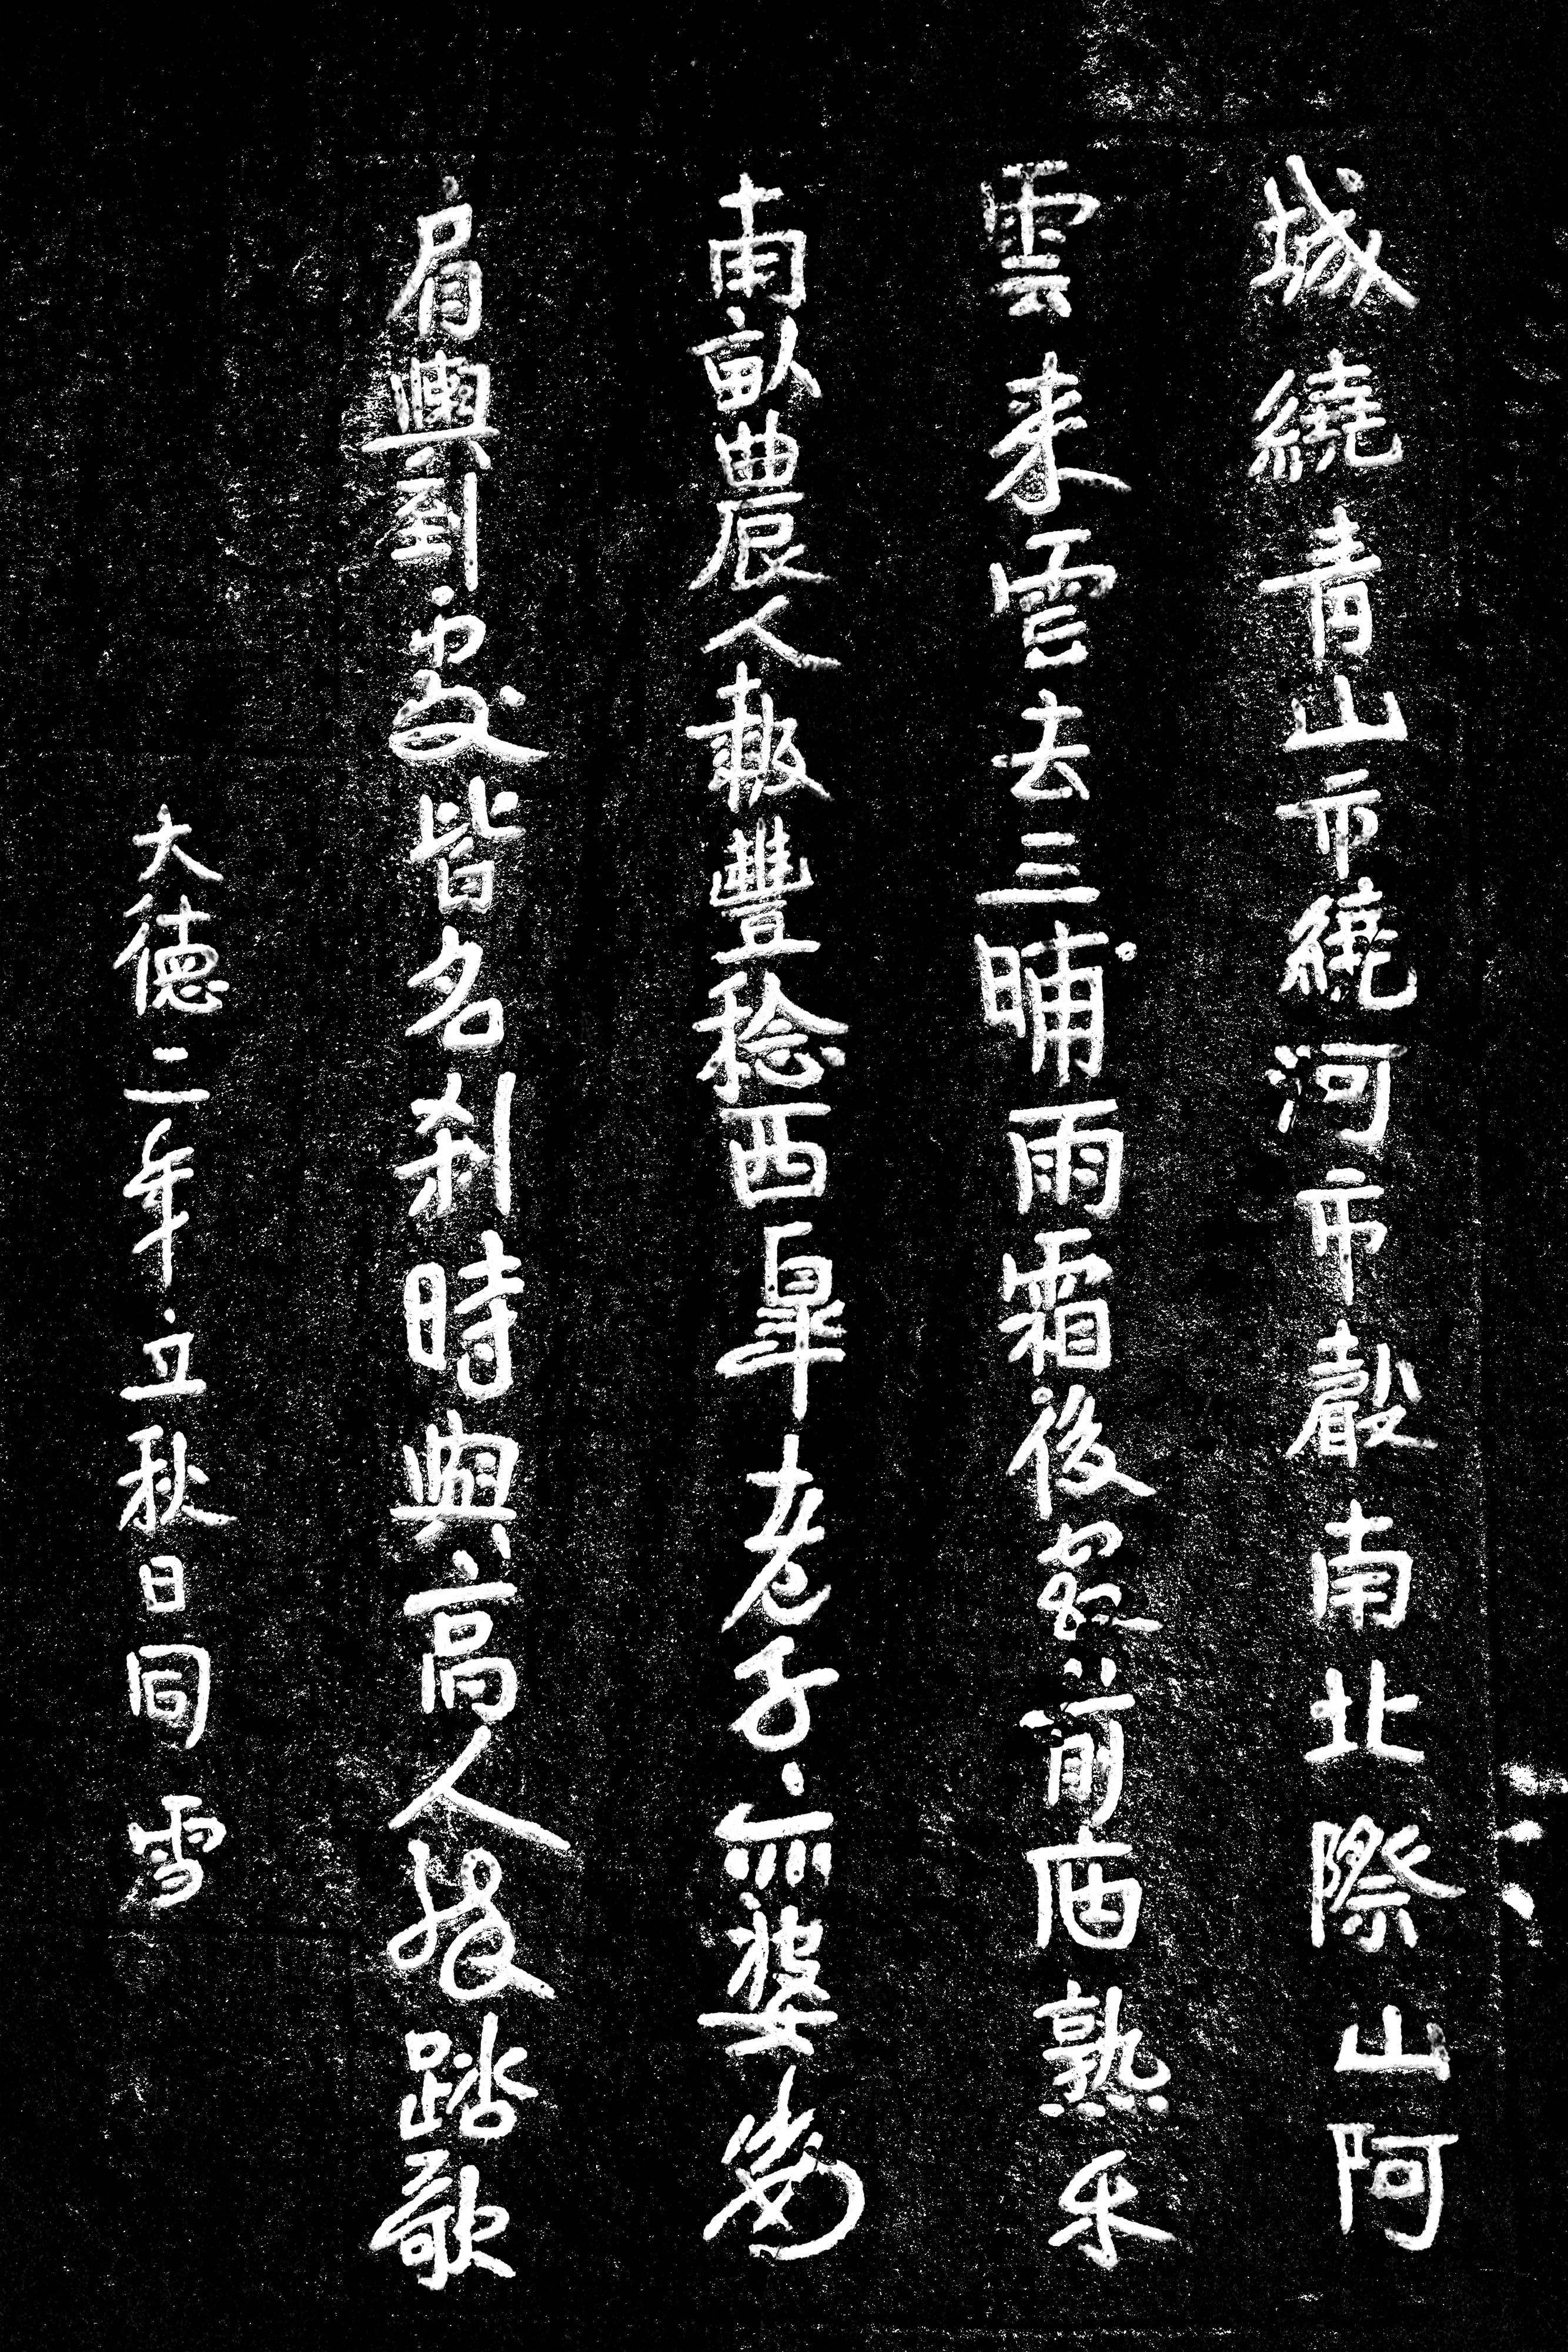 城繞青山市繞河市聲南北際山阿
雲来雲去三晡雨霜後前熟禾
南畝農人報豐稔西皋老子亦婆娑
肩輿到處皆名刹時與高人踏歌
大德二年立秋日同雪